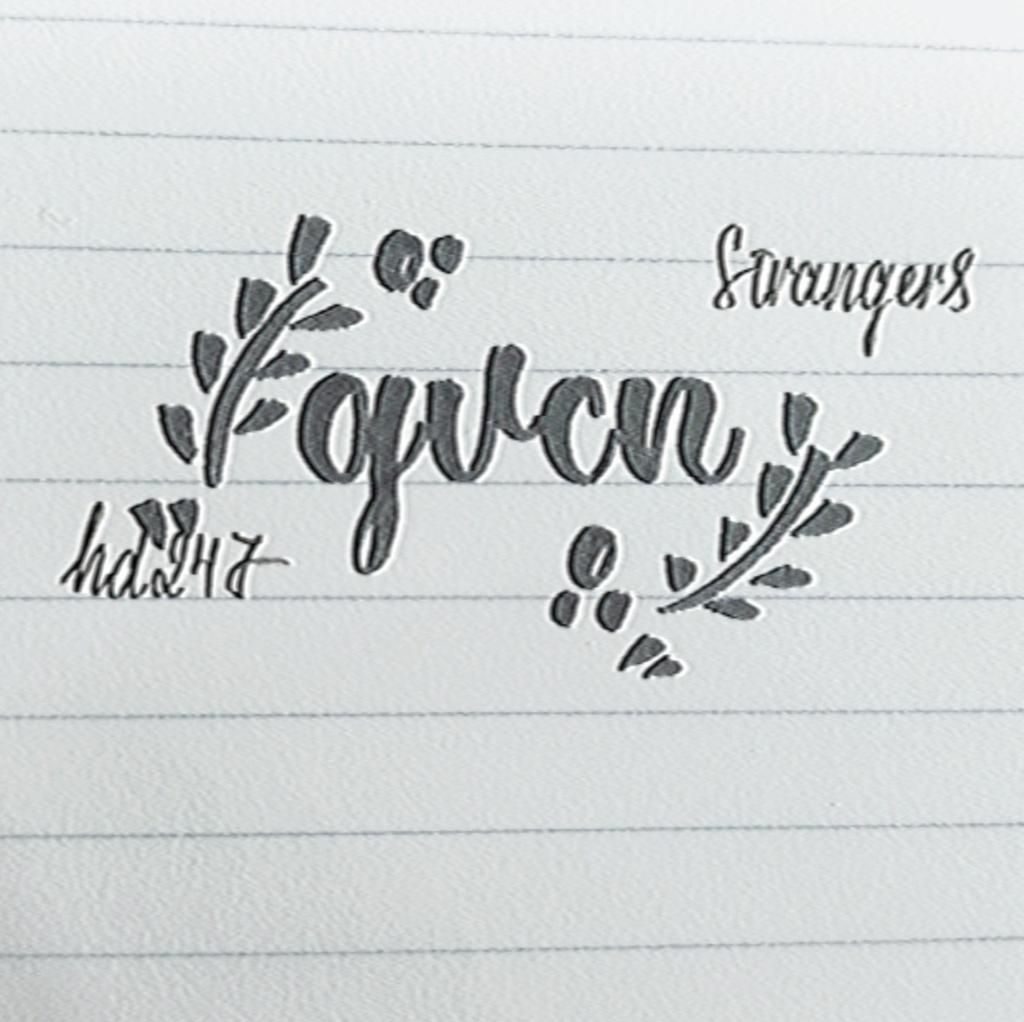 Strangers
qvcn
hd247